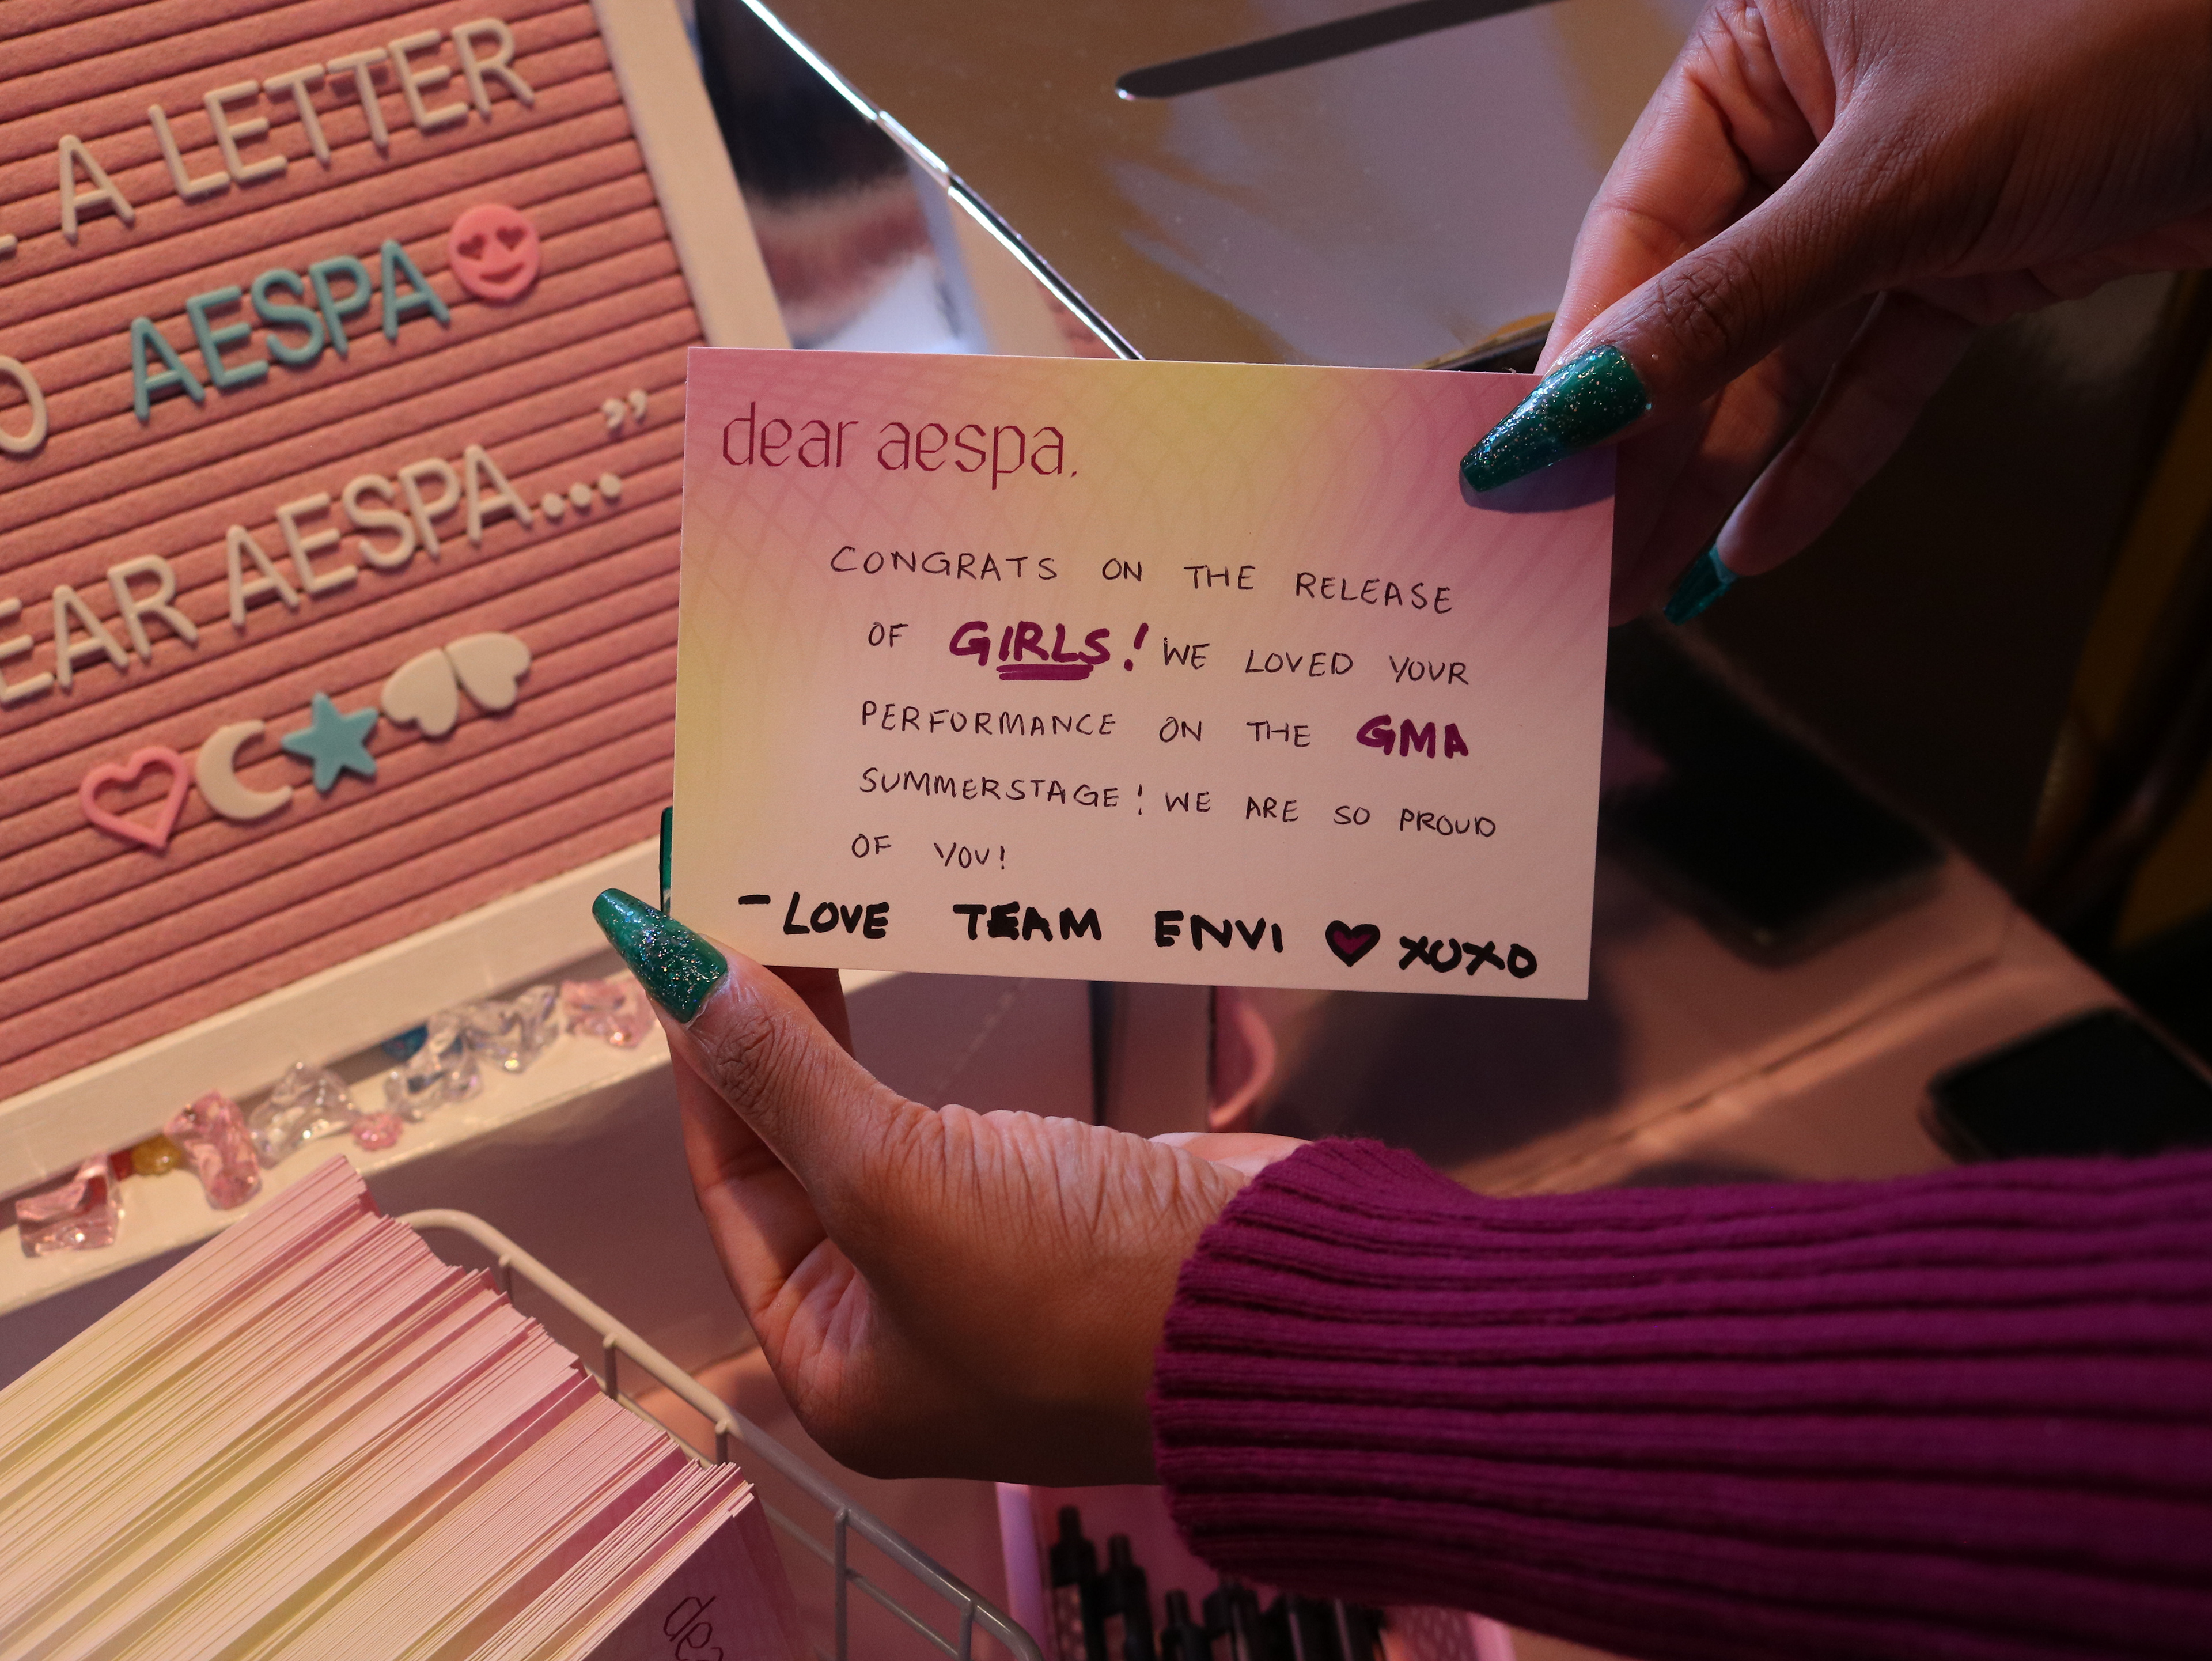 A LETTER
O AESPA
EAR AESPA...."
dear aespa,
CONGRATS ON THE RELEASE
OF GIRLS! WE LOVED YOUR
PERFORMANCE ON THE GMA
SUMMERSTAGE! WE ARE SO PROUD
OF YOU!
- LOVE TEAM ENVI ♥ XOXO
dea